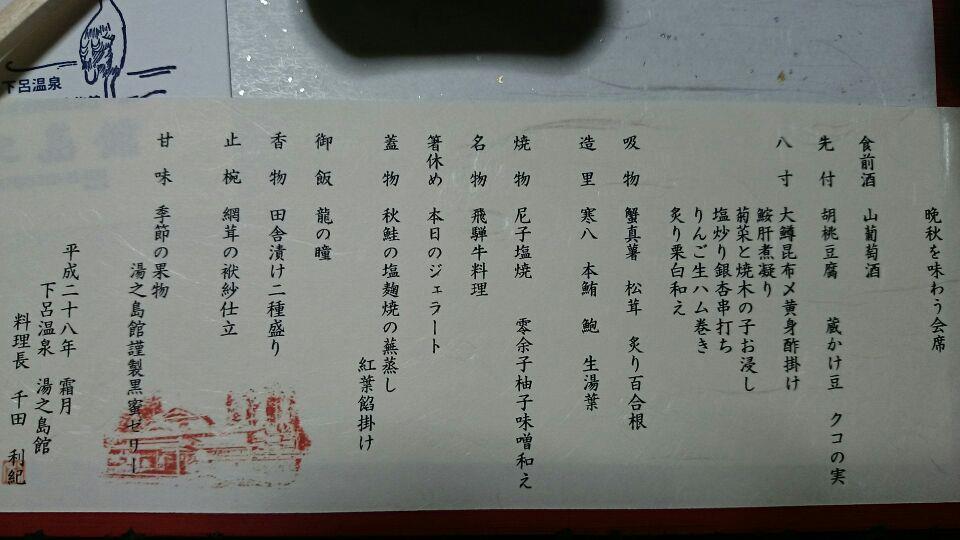 晩秋を味わう会席
食前酒 山葡萄酒
先付 胡桃豆腐 蔵かけ豆 クコの実
八寸 大鱒昆布〆黄身酢掛け
鮟肝煮凝り
菊菜と焼木の子お浸し
塩炒り銀杏串打ち
りんご生ハム巻き
炙り栗白和え
吸物 蟹真薯 松茸 炙り百合根
造里 寒八 本鮪 鮑 生湯葉
焼物 尼子塩焼 零余子柚子味噌和え
名物 飛騨牛料理
箸休め 本日のジェラート
蓋物 秋鮭の塩麹焼の蕪蒸し
紅葉餡掛け
御飯 龍の瞳
香物 田舎漬け二種盛り
止椀 網茸の袱紗仕立
甘味 季節の果物
湯之島館謹製黒蜜ゼリー
平成二十八年 霜月
下呂温泉 湯之島館
料理長 千田 利紀
下呂温泉